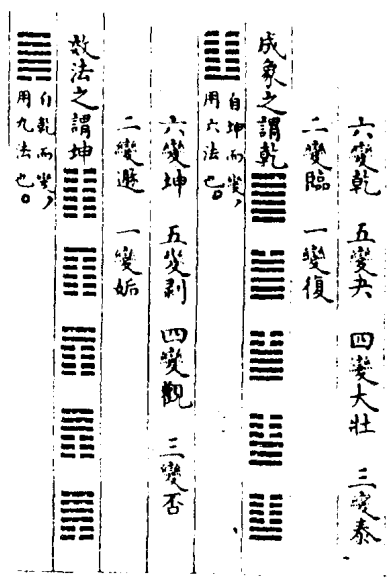 六變乾　五變夬　四變大壯　三變泰
二變臨　一變復
成象之謂乾
自坤而變，
用六法也。
六變坤　五變剥　四變觀　三變否
二變遯　一變姤
效法之謂坤
自乾而變，
用九法也。